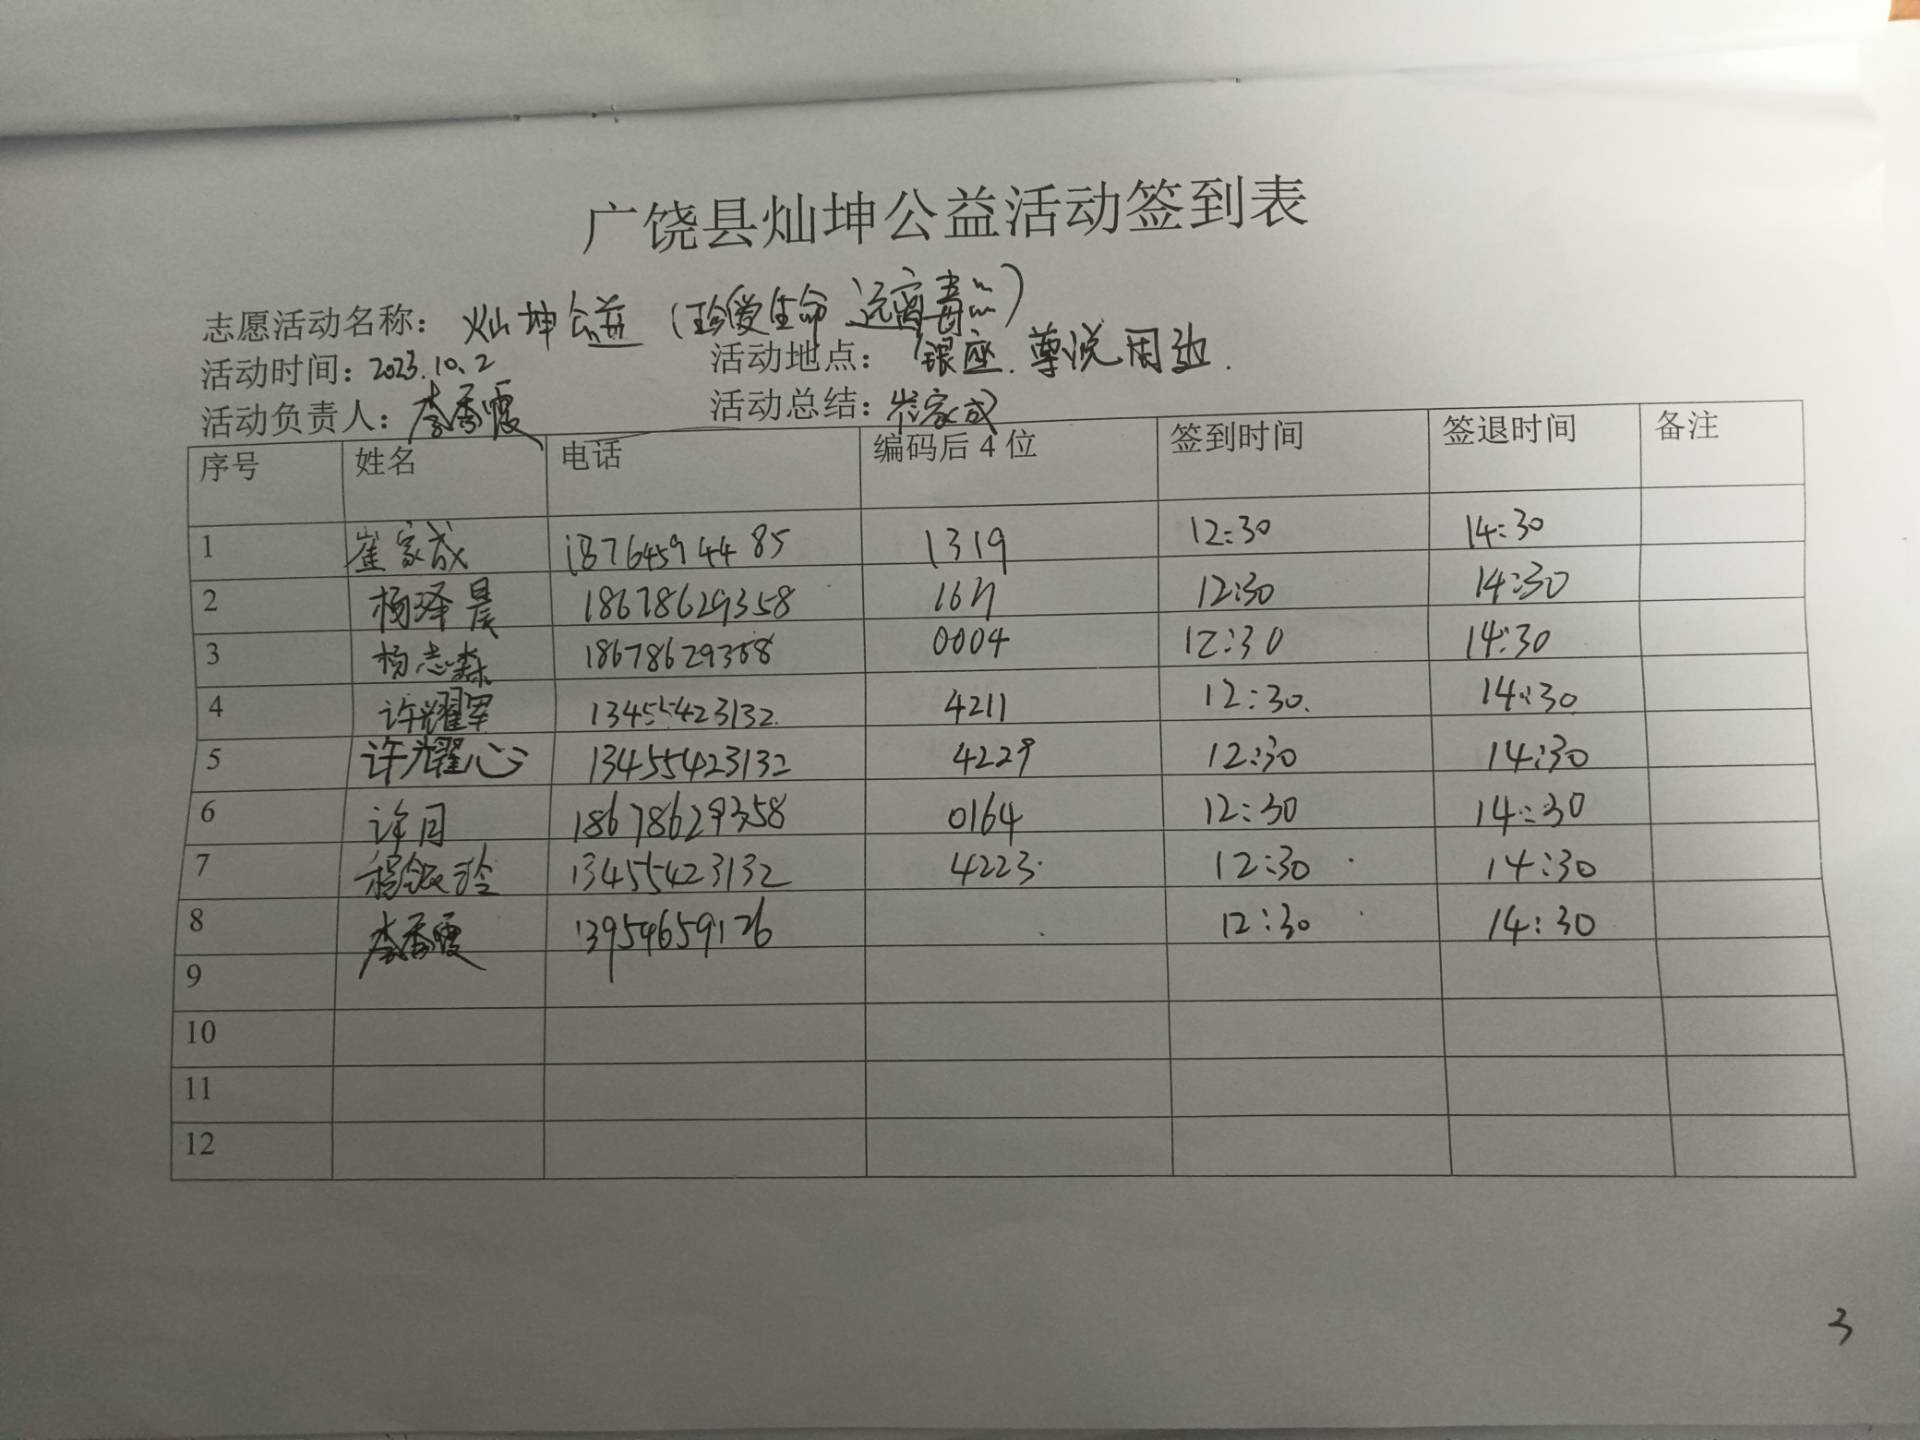 广饶县灿坤公益活动签到表
志愿活动名称：灿坤公益（珍爱生命 远离毒品）
活动时间：2023.10.2 活动地点：银座．尊悦周边．
活动负责人：李香霞 活动总结：崔家成
序号 姓名 电话 编码后4位 签到时间 签退时间 备注
1 崔家成 18764594485 1319 12:30 14:30
2 杨泽晨 18678629358 12:30 14:30
3 杨志森 18678629358 0004 12:30 14:30
4 许耀军 13455423132 4211 12:30 14:30
5 许耀心 13455423132 4229 12:30 14:30
6 许月 18678629358 0164 12:30 14:30
7 程银玲 13455423132 4223 12:30 14:30
8 李香霞 13954659126 12:30 14:30
9
10
11
12
3